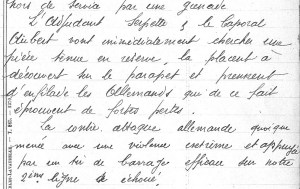 hors de service par une grenade
L'Adjudant Serpette & le Caporal
Aubert vont immédiatement chercher une
pièce tenue en réserve, la placent à
découvert sur le parapet et prennent
d'enfilade les Allemands qui de ce fait
éprouvent de fortes pertes.
La contre attaque allemande quoique
menée avec une violence extrême et appuyée
par un tir de barrage efficace sur notre
2ème ligne a échoué